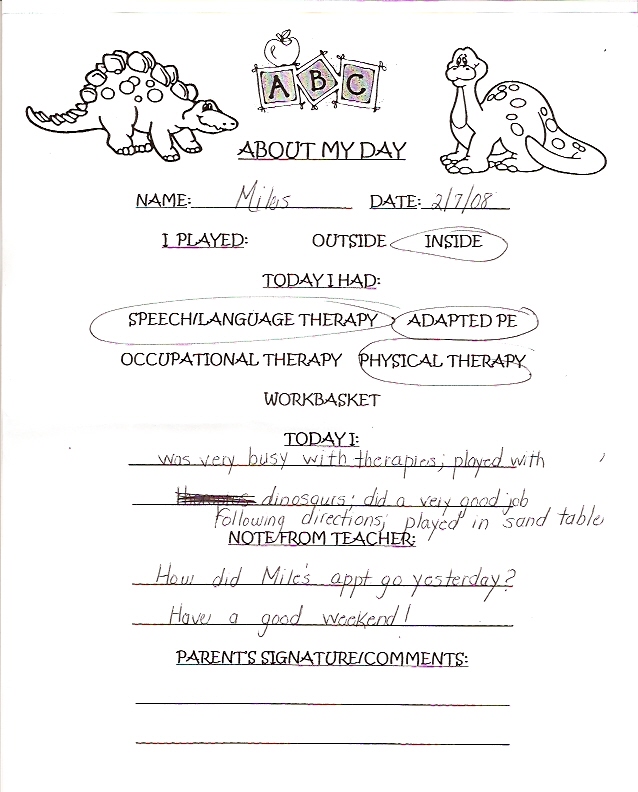 A B C
ABOUT MY DAY
NAME: Miles DATE: 2/7/08
I PLAYED: OUTSIDE INSIDE
TODAY I HAD:
SPEECH/LANGUAGE THERAPY ADAPTED PE
OCCUPATIONAL THERAPY PHYSICAL THERAPY
WORKBASKET
TODAY I:
was very busy with therapies; played with
dinosaurs; did a very good job
following directions; played in sand table
NOTE/FROM TEACHER:
How did Mile's appt go yesterday?
Have a good weekend!
PARENT'S SIGNATURE/COMMENTS: